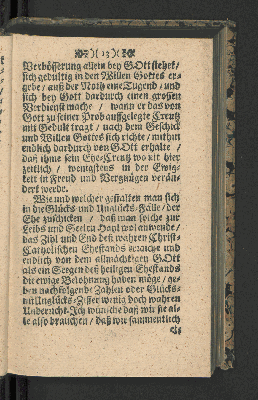 )( 13 )(
Verbösserung allein bey GOtt stehet/
sich gedultig in den Willen Gottes er-
gebe/ auß der Noth eine Tugend/ und
sich bey Gott dardurch einen grossen
Verdienst mache/ wann er das von
Gott zu seiner Prob aufgelegte Creutz
mit Gedult tragt/ nach dem Geschick
und Willen Gottes sich richte/ mithin
endlich dardurch von GOtt erhalte/
daß ihme sein Ehe-Creutz wo nit hier
zeitlich/ wenigstens in der Ewig-
keit in Freud und Vergnügen verän-
dert werde.
Wie und welcher gestalten man sich
in die Glücks und Unglücks-Fälle/ der
Ehe zuschicken/ daß man solche zur
Leibs und Seelen Hayl wol anwende/
das Zihl und End deß wahren Christ-
Catholischen Ehestands erreiche und
endlich von dem allmächtigen GOtt
als ein Seegen deß heiligen Ehestands
die ewige Belohnung haben möge/ ge-
ben nachfolgende Zahlen oder Glücks-
und Unglücks-Ziffer wenig doch wahren
Underricht. Ich wünsche daß wir sie al-
le also brauchen/ daß wir sammentlich